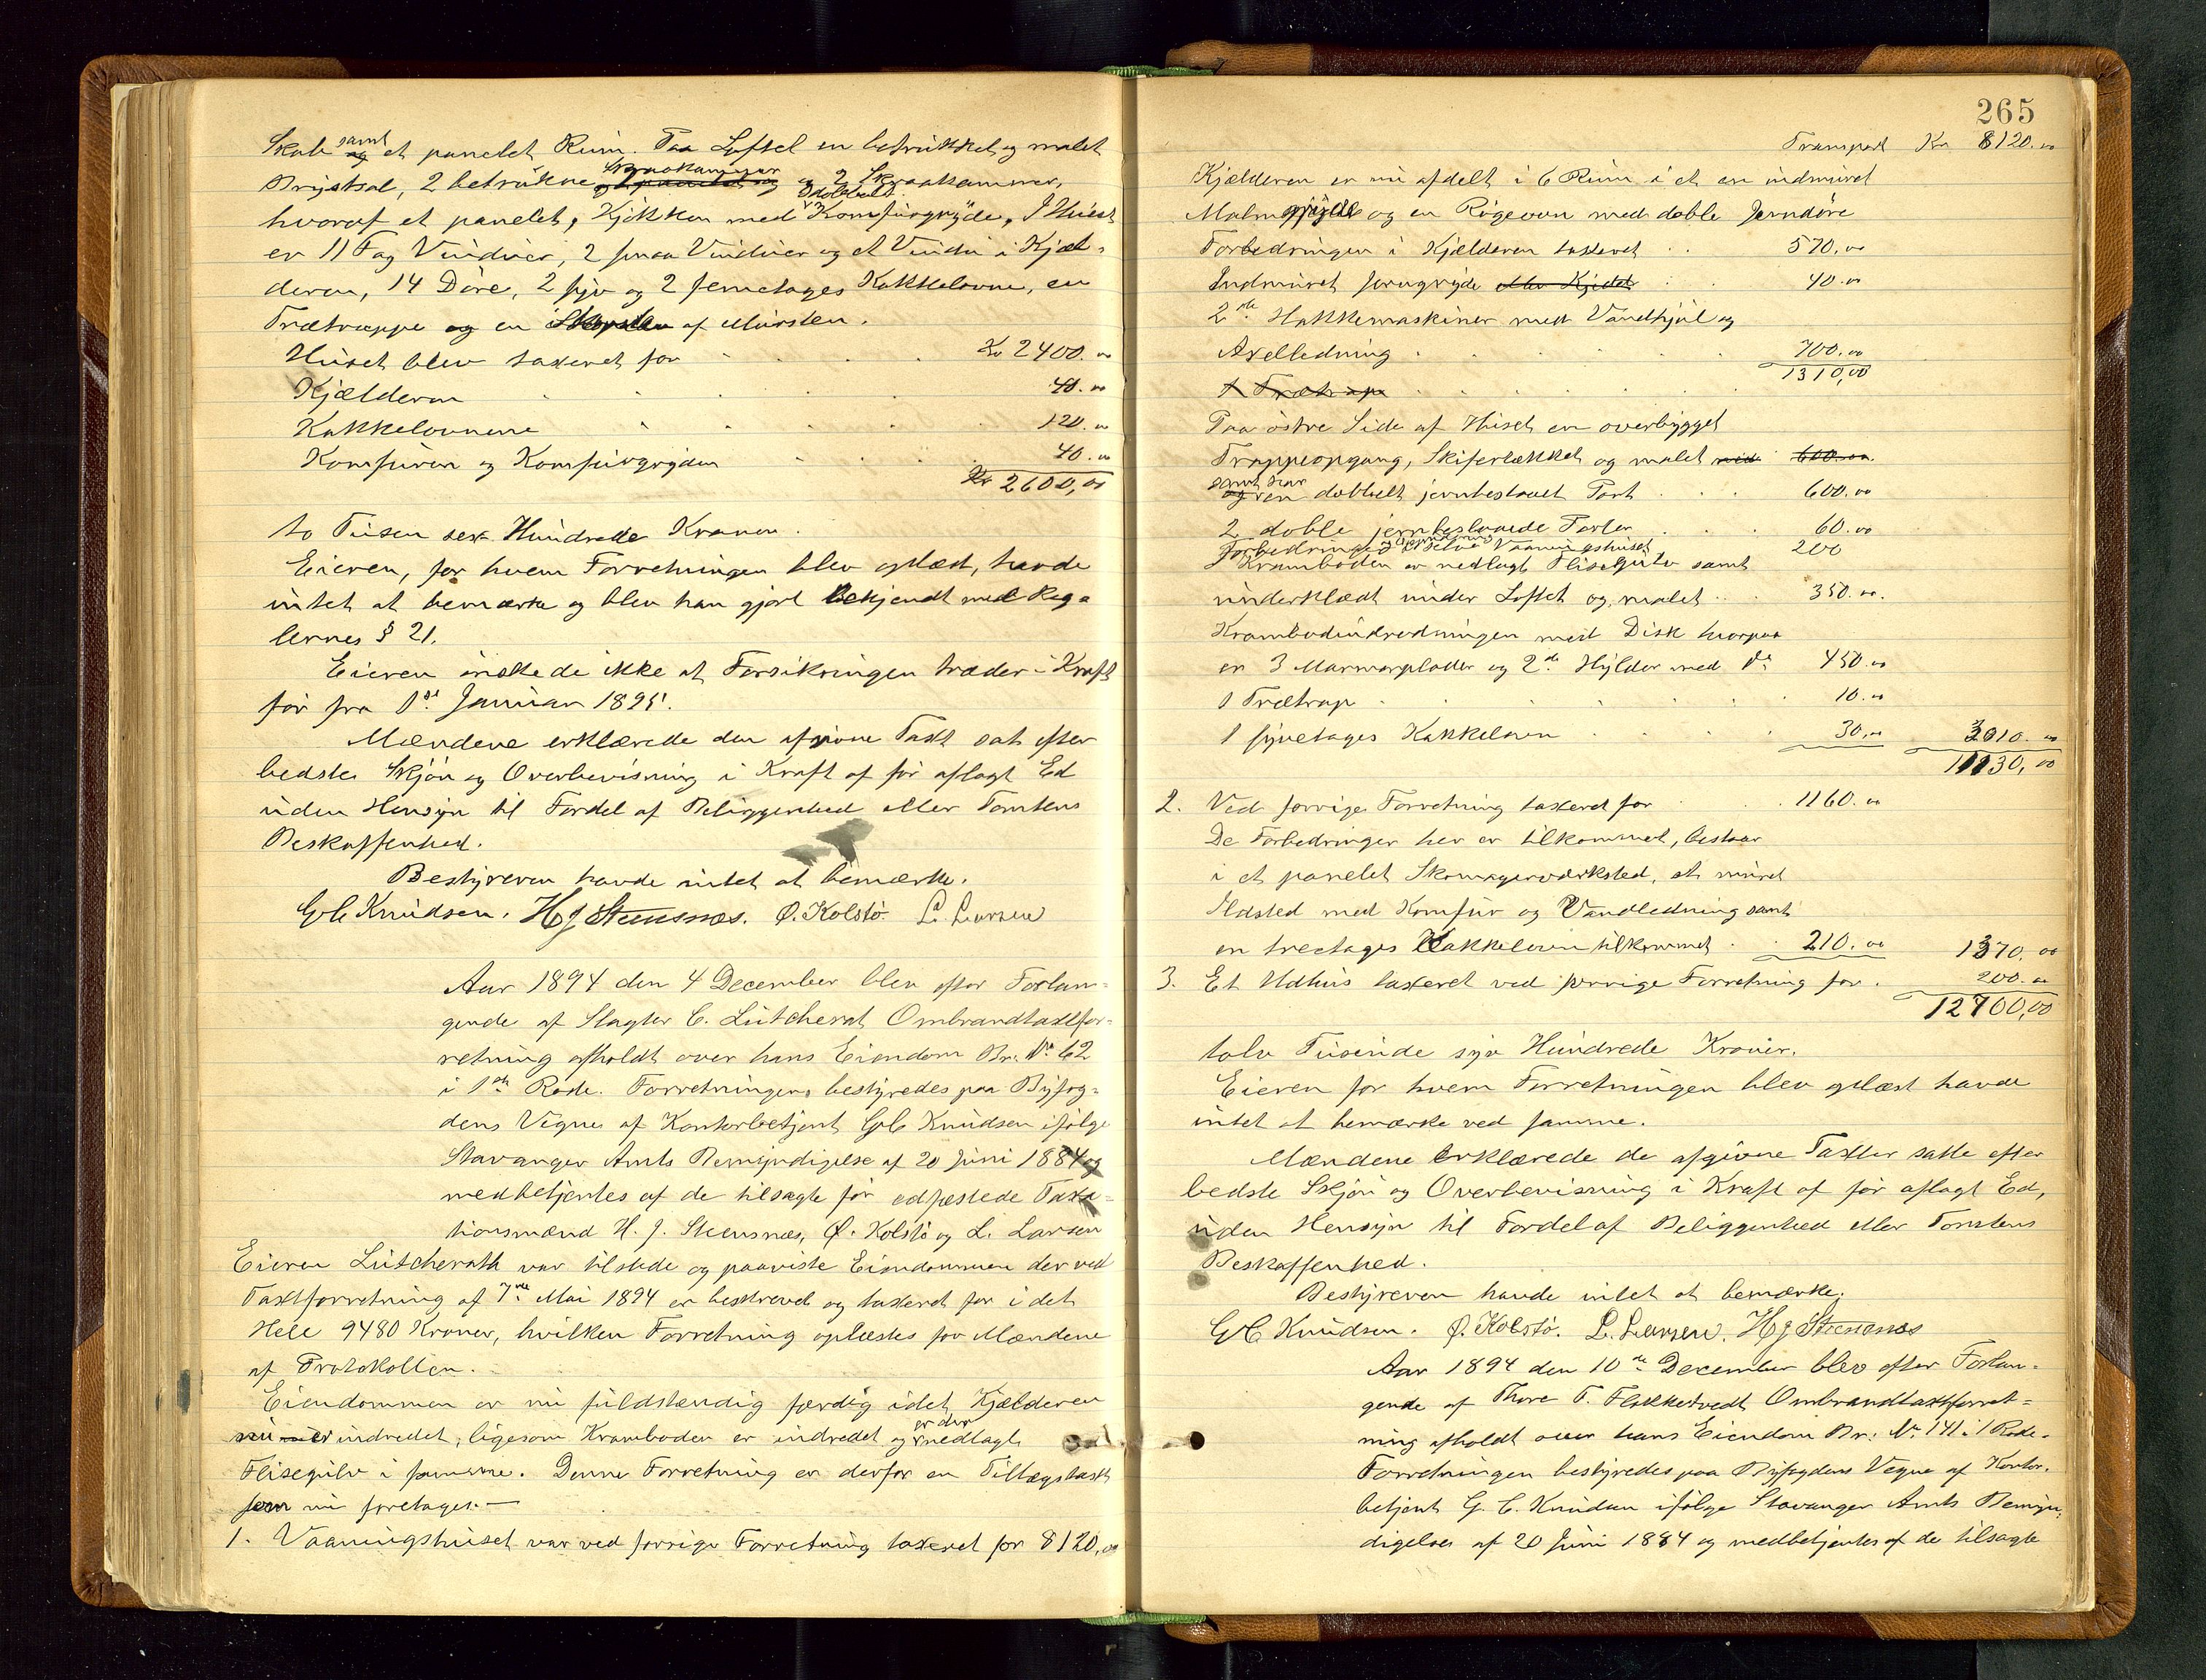 Skab samt et panelet Rum. Paa Loftet en betrukket og malet
Brystsal, 2 betrukne Skraakammer og 2 Skraakammer,
hvoraf et panelet, Kjøkken med dobbelt Komfurgryde, I Huset
er 11 Fag Vinduer, 2 smaa Vinduer og et Vindu i Kjæl-
deren, 14 Døre, 2 syv og 2 femetages Kakkelovne, en
Trætrappe og en af Mursten.
Huset blev taxeret for Kr 2400.00
Kjælderen 40.00
Kakkelovnene 120.00
Komfuren og Komfurgryden 40.00
Kr 2600,00
to Tusen sex Hundrede Kroner.
Eieren, for hvem Forretningen blev oplæst, havde
intet at bemærke og blev han gjort bekjendt med Reg-
lernes § 21.
Eieren ønskede ikke at Forsikringen træder i Kraft
før fra 1ste Januar 1895.
Mændene erklærede den afgivne Taxt sat efter
bedste Skjøn og Overbevisning i Kraft af før aflagt Ed
uden Hensyn til Fordel af Beliggenhed eller Tomtens
Beskaffenhed.
Bestyreren havde intet at bemærke.
G C Knudsen. H J Steensnæs. Ø. Kolstø. L. Larsen
Aar 1894 den 4 December blev efter Forlan-
gende af Slagter C. Lütcherath Ombrandtaxtfor-
retning afholdt over hans Eiendom Br: No 62
i 1ste Rode. Forretningen bestyredes paa Byfog-
dens Vegne af Kontorbetjent G C Knudsen ifølge
Stavanger Amts Bemyndigelse af 20 Juni 1884 og
medbetjentes af de tilsagte før edfæstede Taxa-
tionsmænd H. J. Steensnæs, Ø. Kolstø og L. Larsen
Eieren Lütcherath var tilstede og paaviste Eiendommen der ved
Taxtforretning af 7de Mai 1894 er beskrevet og taxeret for i det
Hele 9480 Kroner, hvilken Forretning oplæstes for Mændene
af Protokollen.
Eiendommen er nu fuldstændig færdig idet Kjælderen
nu er indredet, ligesom Kramboden er indredet og er der nedlagt
Flisegulv i samme. Denne Forretning er derfor en Tillægstaxt
som nu foretages.—
1. Vaaningshuset var ved forrige Forretning taxeret for 8120,00
265
Transport Kr 8120.00
Kjælderen er nu afdelt i 6 Rum i et en indmuret
Malmgryde og en Røgeovn med doble Jerndøre
Forbedringen i Kjælderen taxeret 570,00
Indmuret Jerngryde eller Kjedel 40.00
2de Hakkemaskiner med Vandhjul og
Axelledning 700.00
1310,00
1 Trætrap
Paa østre Side af Huset en overbygget
Trappeopgang, Skifertækket og malet med 600.00
samt har en dobbelt jernbeslaaet Port 600.00
2 doble jernbeslaaede Porter 60.00
Forbedringer i selve Vaaningshuset 200
I Kramboden er nedlagt Flisegulv samt
underklædt under Loftet og malet 350.00.
Krambodindredningen med Disk hvorpaa
er 3 Marmorplader og 2de Hylder med do 450.00
1 Trætrap 10.00
1 syvetages Kakkelovn 30,00 3010.00
11130,00
2. Ved forrige Forretning taxeret for 1160.00
De Forbedringer her er tilkommet, bestaar
i et panelet Skomagerværksted, et muret
Ildsted med Komfur og Vandledning samt
en treetages Kakkelovn tilkommet 210.00 1370,00
3. Et Udhus taxeret ved forrige Forretning for 200.00
12700,00
tolv Tusinde syv Hundrede Kroner.
Eieren for hvem Forretningen blev oplæst havde
intet at bemærke ved samme.
Mændene erklærede de afgivne Taxter satte efter
bedste Skjøn og Overbevisning i Kraft af før aflagt Ed,
uden Hensyn til Fordel af Beliggenhed eller Tomtens
Beskaffenhed.
Bestyreren havde intet at bemærke.
G C Knudsen. Ø. Kolstø. L. Larsen. H J Steensnæs
Aar 1894 den 10de December blev efter Forlan-
gende af Thore T. Flikketvedt Ombrandtaxtforret-
ning afholdt over hans Eiendom Br: No 141 i 1 Rode.
Forretningen bestyredes paa Byfogdens Vegne af Kontor-
betjent G. C. Knudsen ifølge Stavanger Amts Bemyn-
digelse af 20 Juni 1884 og medbetjentes af de tilsagte